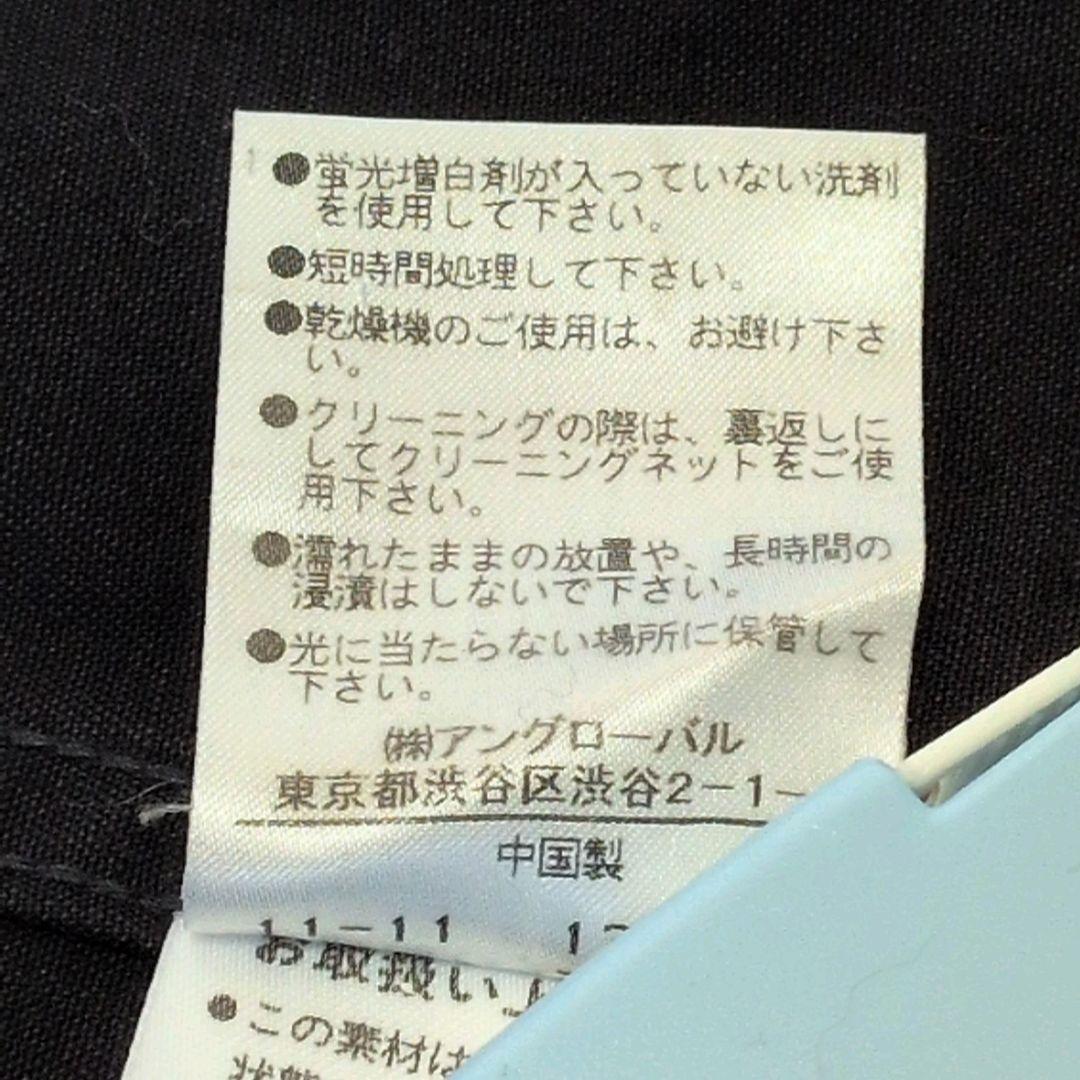 ●蛍光増白剤が入っていない洗剤
を使用して下さい。
●短時間処理して下さい。
●乾燥機のご使用は、お避け下さ
い。
●クリーニングの際は、裏返しに
してクリーニングネットをご使
用下さい。
●濡れたままの放置や、長時間の
浸漬はしないで下さい。
●光に当たらない場所に保管して
下さい。
㈱アングローバル
東京都渋谷区渋谷2-1-
中国製
11-11
お取扱い
●この素材は
状態